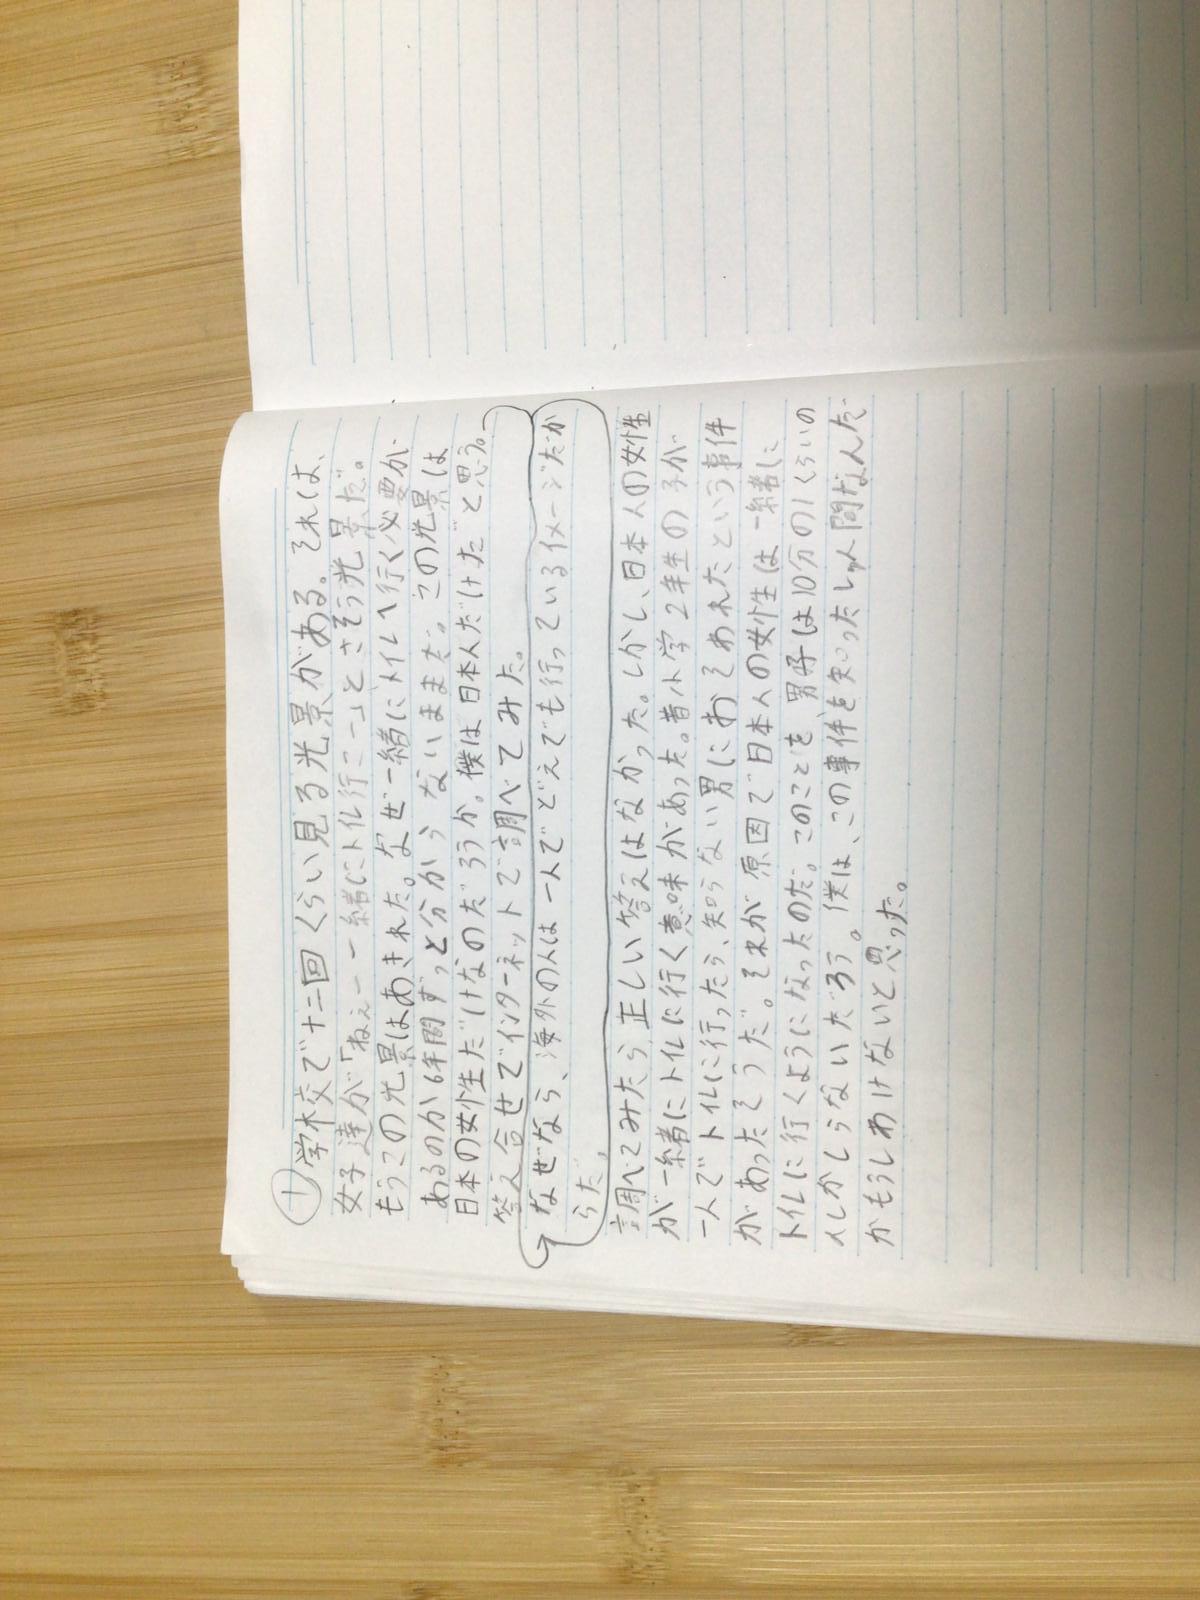 ① 学校で十二回くらい見る光景がある。それは、
女子達が「ねぇー一緒にトイレ行こー」とさそう光景だ。
もうこの光景はあきれた。なぜ一緒にトイレへ行く必要が
あるのか6年間ずっと分からないままだ。この光景は
日本の女性だけなのだろうか。僕は日本人だけだと思う。
答え合せでインターネットで調べてみた。
なぜなら、海外の人は一人でどえでも行っているイメージだか
らだ。
調べてみたら正しい答えはなかった。しかし、日本人の女性
が一緒にトイレに行く意味があった。昔小学2年生の子が
一人でトイレに行ったら、知らない男におそわれたという事件
があったそうだ。それが原因で日本人の女性は一緒に
トイレに行くようになったのだ。このことを男子は10分の1くらいの
人しかしらないだろう。僕は、この事件を知った人間なんだ
かもうしわけないと思った。